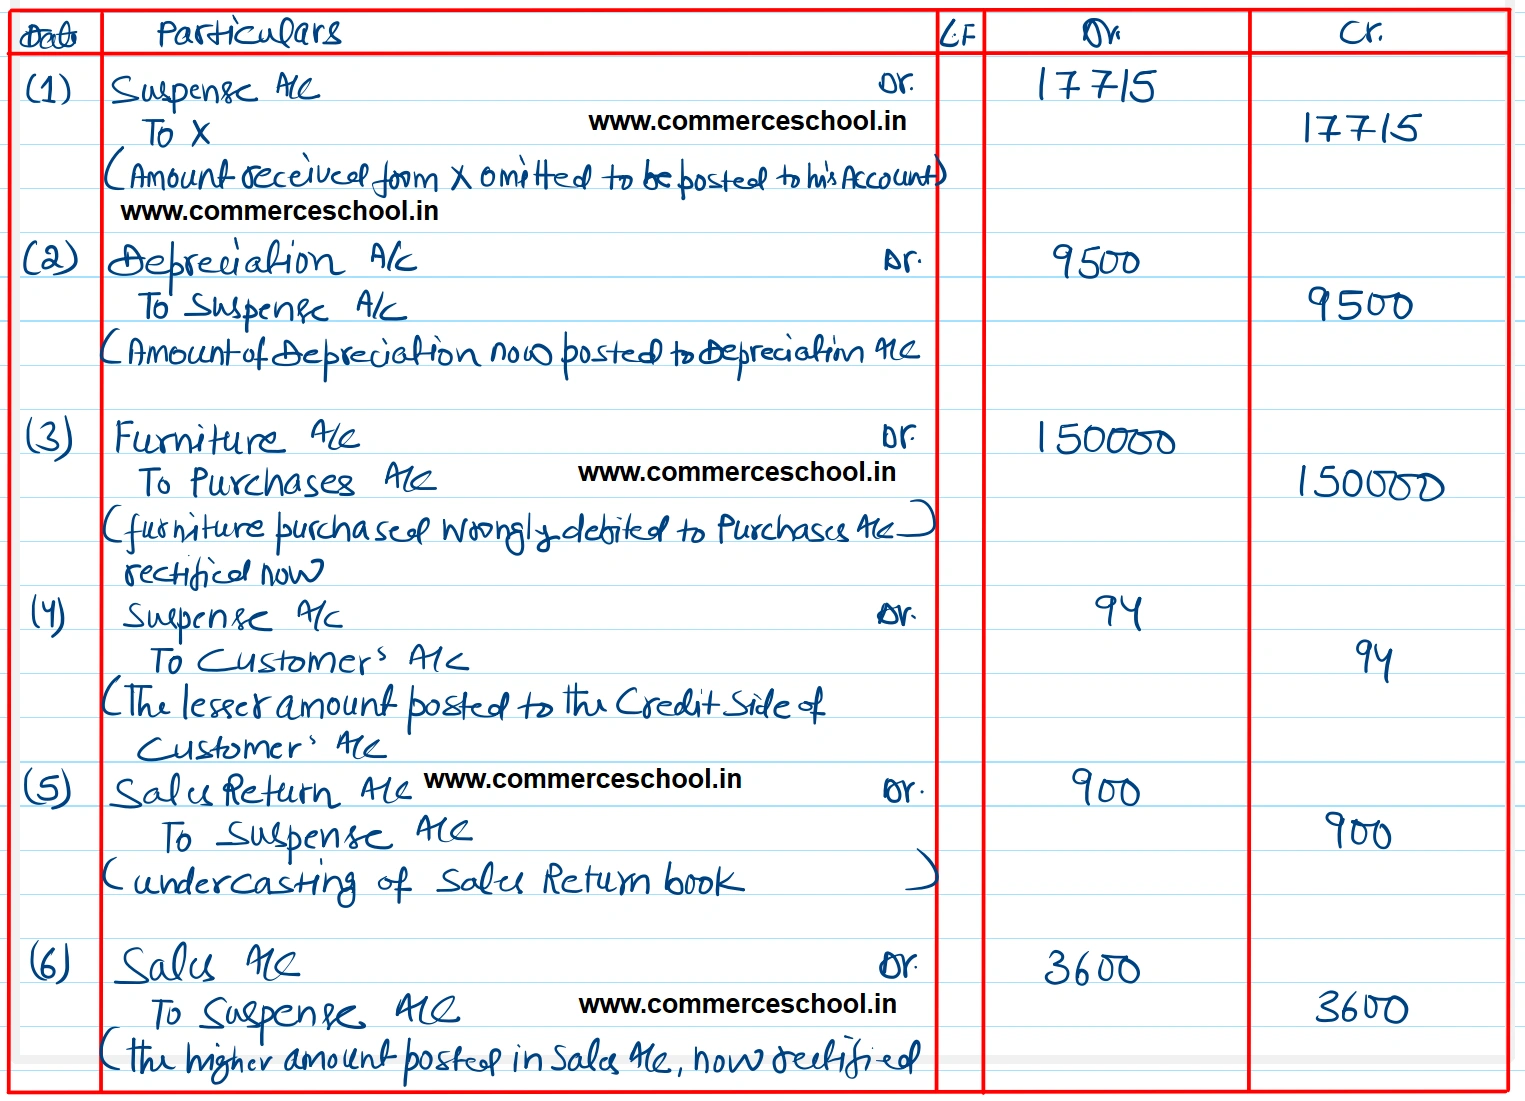 Date Particulars L.F Dr. Cr.
(1) Suspense A/c Dr. 17715
To X www.commerceschool.in 17715
(Amount received form X omitted to be posted to his Account)
www.commerceschool.in
(2) Depreciation A/c Dr. 9500
To Suspense A/c 9500
(Amount of Depreciation now posted to Depreciation A/c
(3) Furniture A/c Dr. 150000
To Purchases A/c www.commerceschool.in 150000
(furniture purchased wrongly debited to Purchases A/c)
rectified now
(4) Suspense A/c Dr. 94
To Customer's A/c 94
(The lesser amount posted to the Credit Side of
Customer's A/c
(5) Sales Return A/c www.commerceschool.in Dr. 900
To Suspense A/c 900
(undercasting of Sales Return book)
(6) Sales A/c Dr. 3600
To Suspense A/c www.commerceschool.in 3600
(the higher amount posted in Sales A/c, now rectified